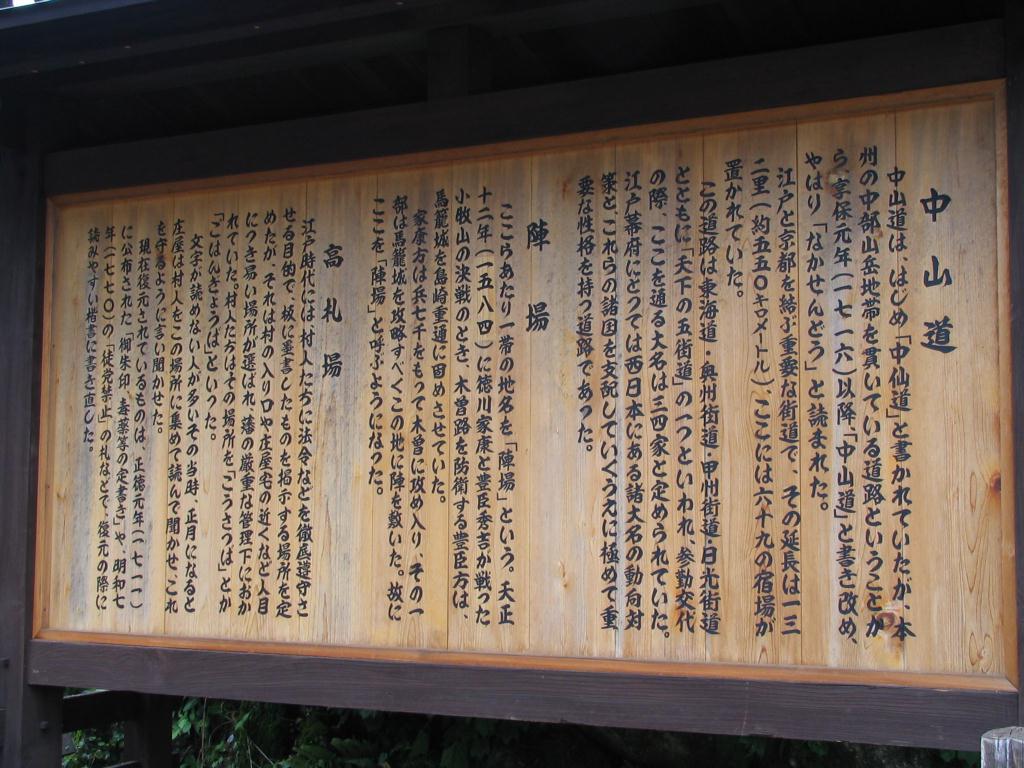 中山道
中山道は、はじめ「中仙道」と書かれていたが、本
州の中部山岳地帯を貫いている道路ということか
ら、享保元年(一七一六)以降「中山道」と書き改め、
やはり「なかせんどう」と読まれた。
江戸と京都を結ぶ重要な街道で、その延長は一三
二里(約五五〇キロメートル)ここには六十九の宿場が
置かれていた。
この道路は東海道・奥州街道・甲州街道・日光街道
とともに「天下の五街道」の一つといわれ、参勤交代
の際、ここを通る大名は三四家と定められていた。
江戸幕府にとっては西日本にある諸大名の動向対
策とこれらの諸国を支配していくうえに極めて重
要な性格を持つ道路であった。
陣場
ここらあたり一帯の地名を「陣場」という。天正
十二年(一五八四)に徳川家康と豊臣秀吉が戦った
小牧山の決戦のとき、木曽路を防衛する豊臣方は、
馬籠城を島崎重通に固めさせていた。
家康方は兵七千をもって木曽に攻め入り、その一
部は馬籠城を攻略すべくこの地に陣を敷いた。故に
ここを「陣場」と呼ぶようになった。
高札場
江戸時代には村人たちに法令などを徹底遵守さ
せる目的で、板に墨書したものを掲示する場所を定
めたが、それは村の入り口や庄屋宅の近くなど人目
につき易い場所が選ばれ、藩の厳重な管理下におか
れていた。村人たちはその場所を「こうさつば」とか
「ごはんぎょうば」といった。
文字が読めない人が多いその当時、正月になると
庄屋は村人をこの場所に集めて読んで聞かせ、これ
を守るように言い聞かせた。
現在復元されているものは、正徳元年(一七一一)
に公布された「御朱印、毒薬等の定書き」や、明和七
年(一七七〇)の「徒党禁止」の札などで、復元の際に
読みやすい楷書に書き直した。